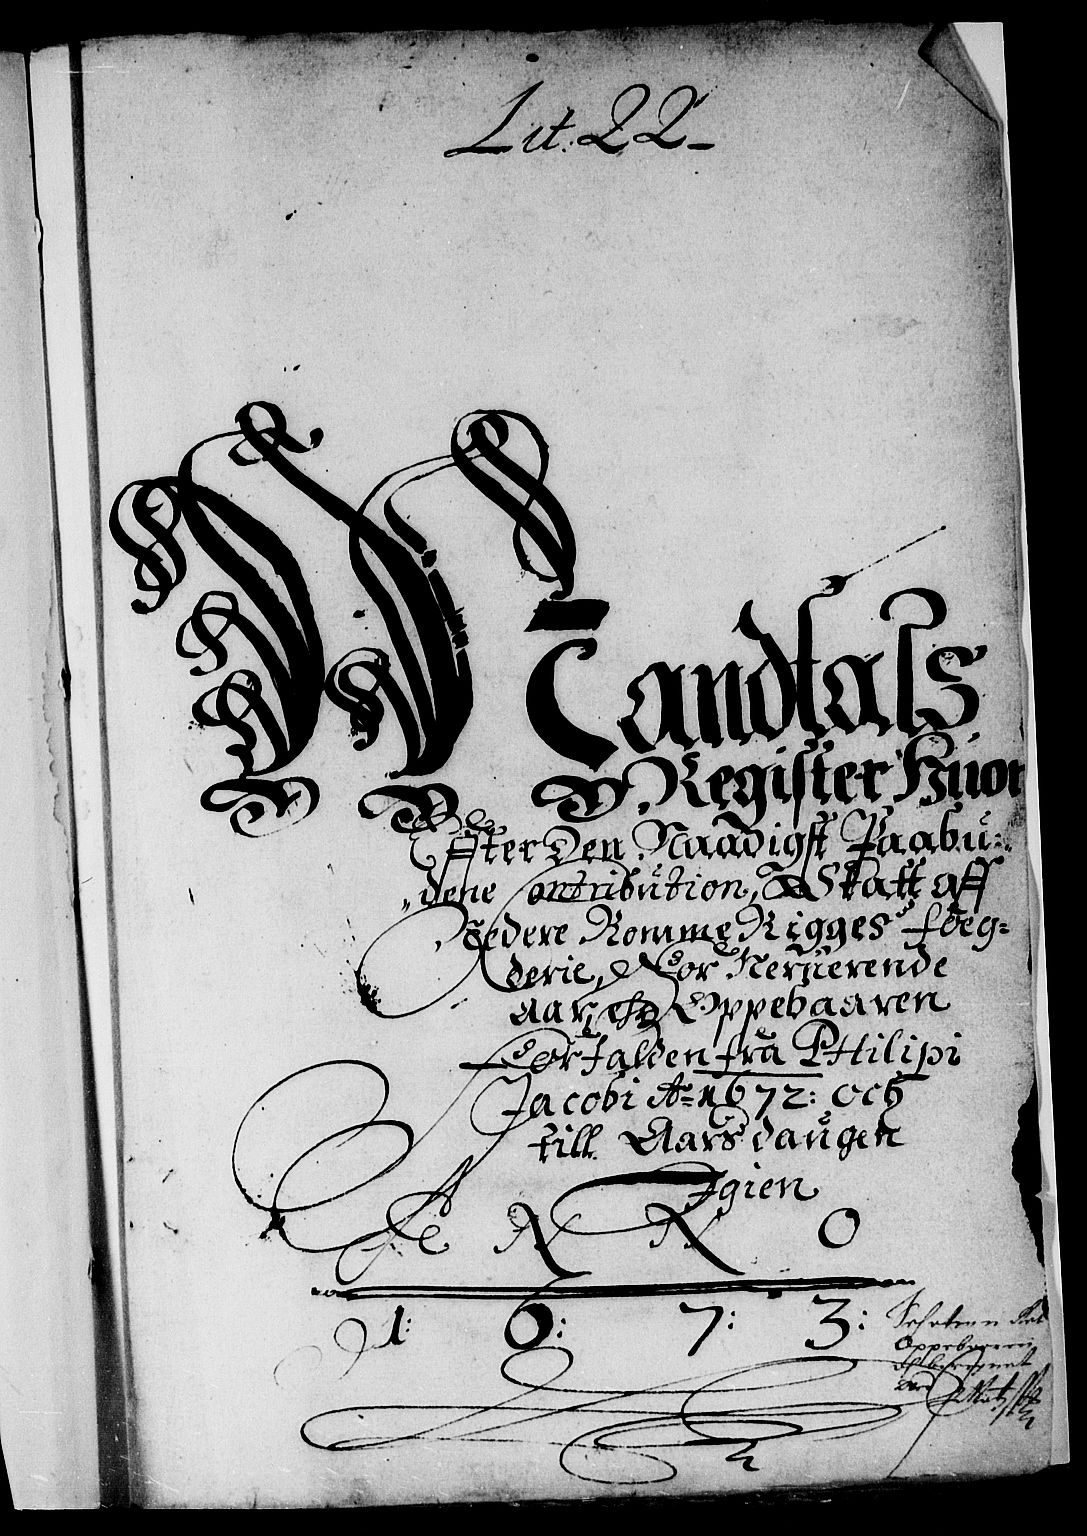 Lit. 22
Mandtals
Register Huor
Effter Den Naadigst Paabu:
dene Contribution, Skatt aff
Nedere Rommerigges foeg=
derie, For Neruerende
Aar, Er Oppebaaren
Forfalden fra PHilipi
Jacobi Ao 1672: och
till Aarsdaugen
Igien
ANNO
1: 6: 7: 3:
Oppebaaren